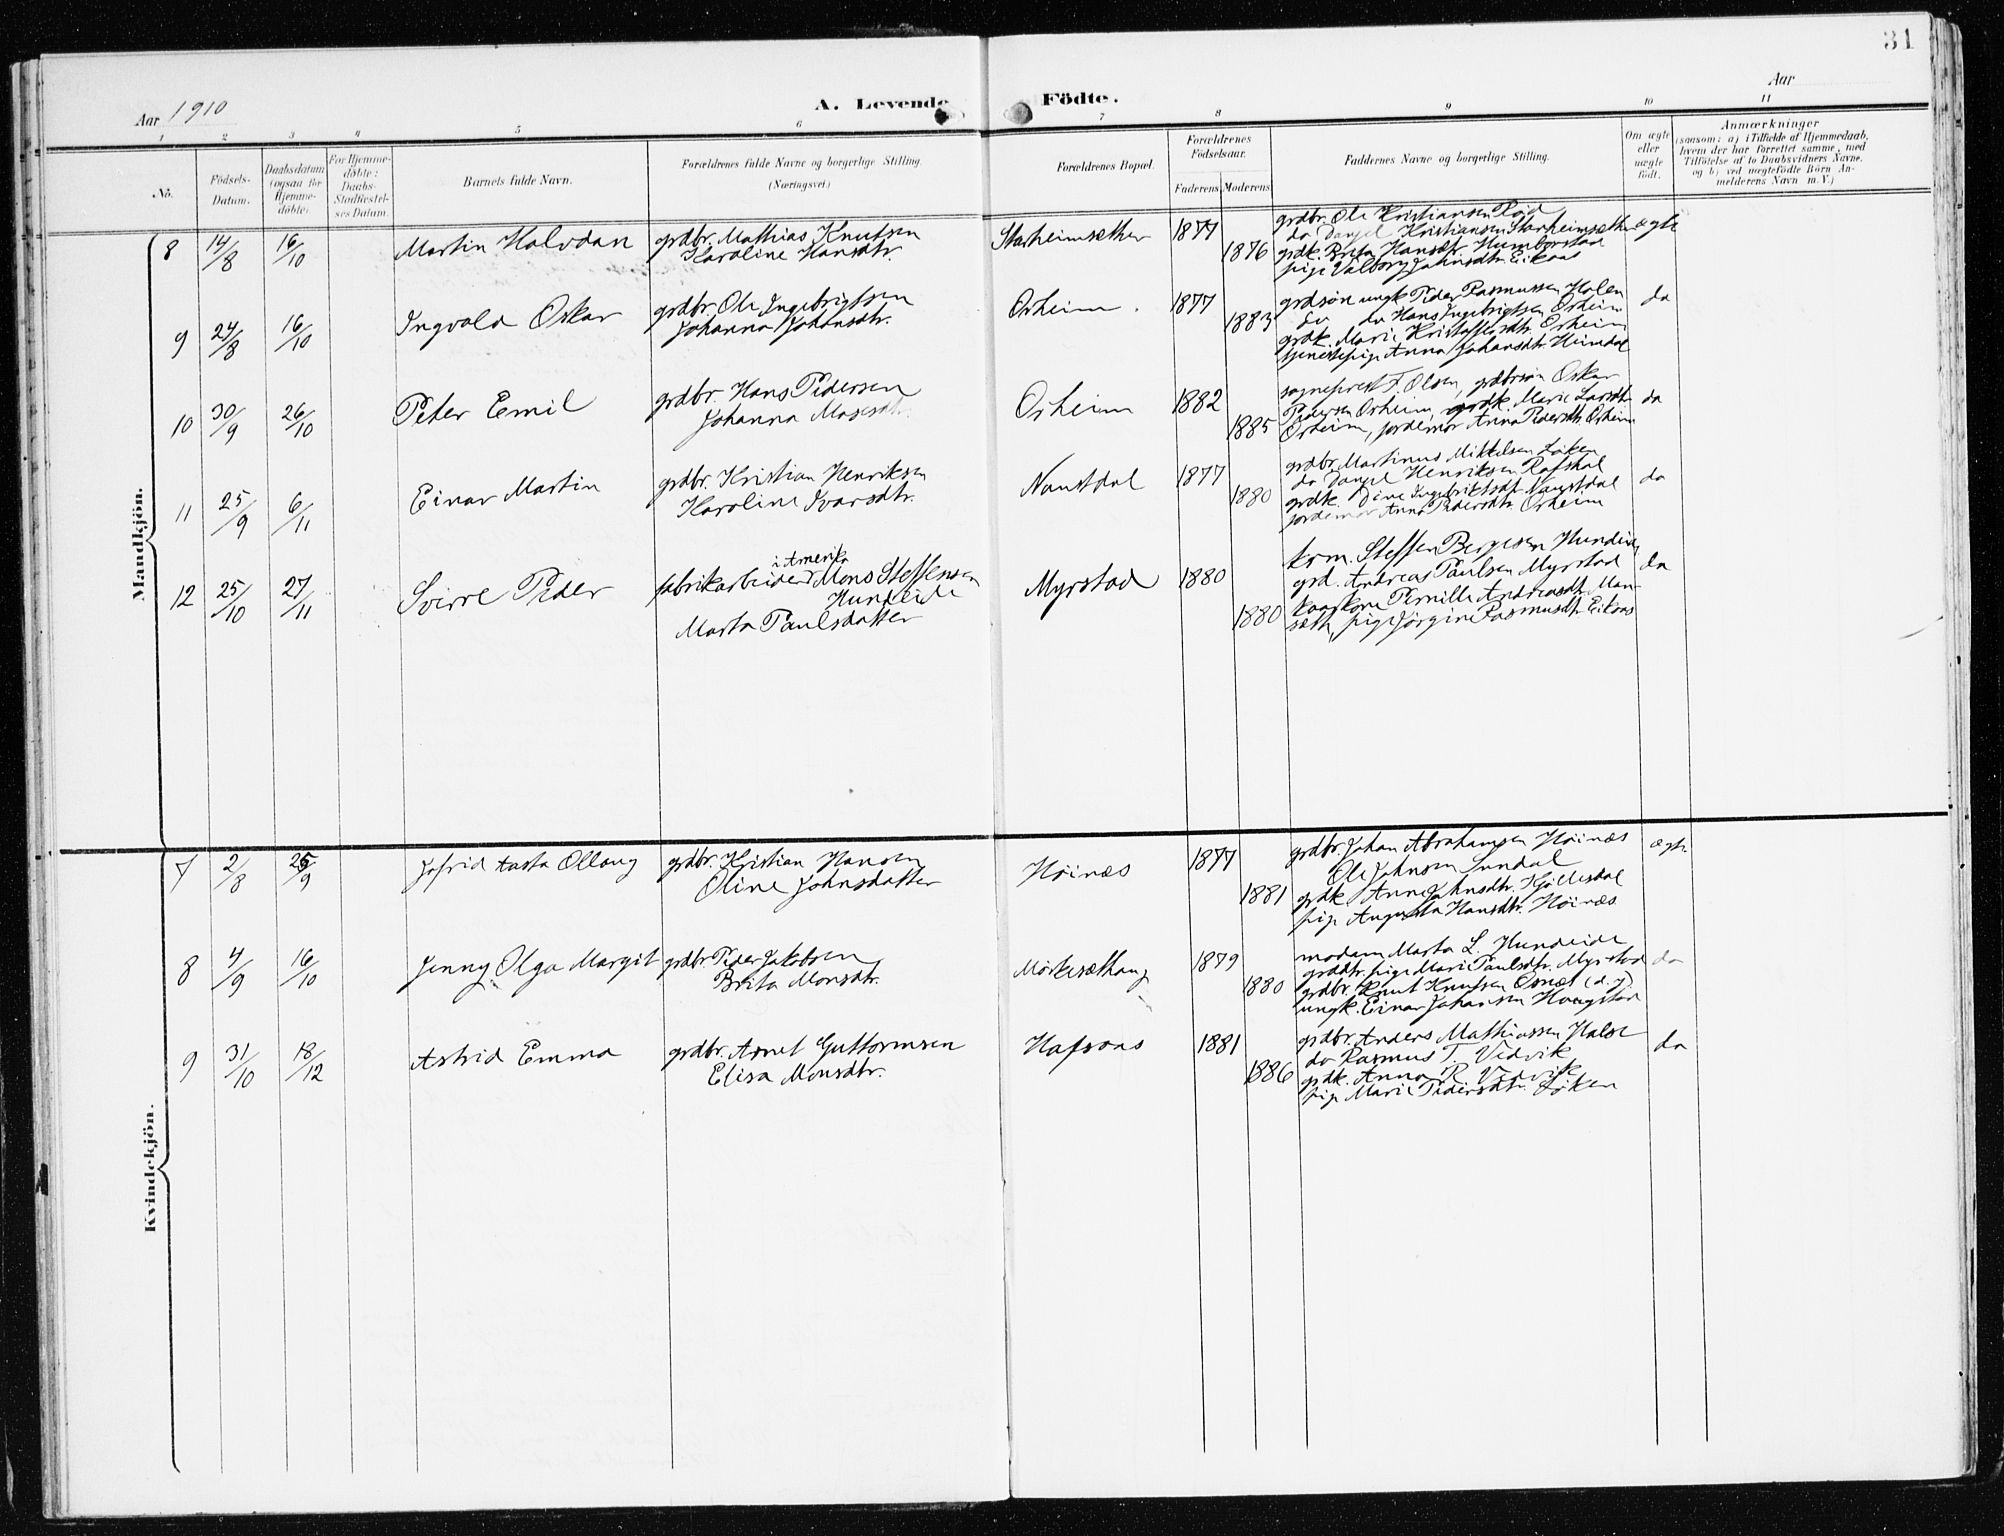 31
Aar 1910
A. Levende Födte.
Aar
1 2 3 4 5 6 7 8 9 10 11
No.
Födsels-Datum.
Daabsdatum (ogsaa for Hjemme-döbte)
For Hjemme-döbte: Daabs-Stadfæstel-ses Datum.
Barnets fulde Navn.
Forældrenes fulde Navne og borgerlige Stilling.
(Næringsvei.)
Forældrenes Bopæl.
Forældrenes Födselsaar.
Faderens
Moderens
Faddernes Navne og borgerlige Stilling.
Om ægte eller uægte født.
Anmærkninger
(saasom: a) i Tilfælde af Hjemmedaab,
hvem der har forrettet samme, med
Tilföielse af to Daabsvidners Navne,
og b) ved uægtefödte Börn An-
melderens Navn m. V.)
Mandkjön.
8 14/8 16/10 Martin Halvdan
grdbr. Mathias Knutsen
Karoline Hansdtr.
Starheimsæther 1877
1876
grdbr. Ole Kristiansen Röid
do Daniel Kristiansen Starheimsæther
grdk. Brita Hansdtr Humborstad
pige Valborg Johnsdtr. Eikaas
ægte
9 24/8 16/10 Ingvald Oskar
grdbr. Ole Ingebrigtsen
Johanna Johansdtr.
Osheim. 1877
1883
grdsön ungk Peder Rasmussen Holen
do do Hans Ingebrigtsen Osheim
grdk. Marie Kristoffersdtr. Osheim
tjenestepige Anna Johansdtr. Heimdal
do
10 30/9 26/10 Peter Emil
grdbr. Hans Pedersen
Johanna Mosesdtr.
Osheim 1882
1885
sogneprest F. Olsen, grdbrsön Oskar
Pedersen Osheim, grdk. Marie Larsdtr.
Osheim, jordemor Anna Pedersdtr. Osheim
do
11 25/9 6/11 Einar Martin
grdbr. Kristian Henriksen
Karoline Ivarsdtr.
Naustdal 1877
1880
grdbr. Martinus Mikkelsen Löken
do Daniel Henriksen Rafstal
grdk. Dine Ingebriktsdtr Naustdal
jordemor Anna Pedersdtr. Osheim
do
12 25/10 27/11 Sverre Peder
i Amerika
fabrikarbeider Mons Steffensen
Hundeide
Marta Paulsdatter
Myrstad 1880
1880
krm. Steffen Bergesen Hundeide
grd. Andreas Paulsen Myrstad
kaarkone Pernille Andreasdtr. Man-
sæth, pige Jörgine Rasmusdtr. Eikaas
do
Kvindekjön.
7 2/8 25/9 Jofrid Aasta Ollaug
grdbr. Kristian Hansen
Oline Johnsdatter
Höinæs 1877
1881
grdbr. Johan Abrahamsen Höinæs
Ole Johnsen Sundal
grdk. Anne Johnsdtr. Hjellesdal
pige Augusta Hansdtr. Höinæs
ægte
8 4/9 16/10 Jenny Olga Margit
grdbr. Peder Jakobsen
Brita Monsdtr.
Mörkesæthaug 1879
1880
madam Marta L. Hundeide
grddtr. pige Marie Paulsdtr. Myrstad
grdbr. Knut Knutsen Osnæs (d.y.)
ungk. Einar Johansen Haugstad
do
9 31/10 18/12 Astrid Emma
grdbr. Arnet Guttormsen
Elisa Monsdtr.
Hafsaas 1881
1886
grdbr. Anders Mathiassen Halse
do Rasmus T. Vedvik
grdk. Anna R. Vedvik
pige Marie Pedersdtr. Löken
do